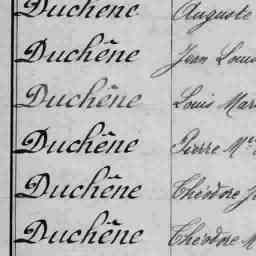 Duchêne Auguste
Duchêne Jean Louis
Duchêne Louis Mar
Duchêne Pierre M
Duchêne Théodore J
Duchêne Théodore M